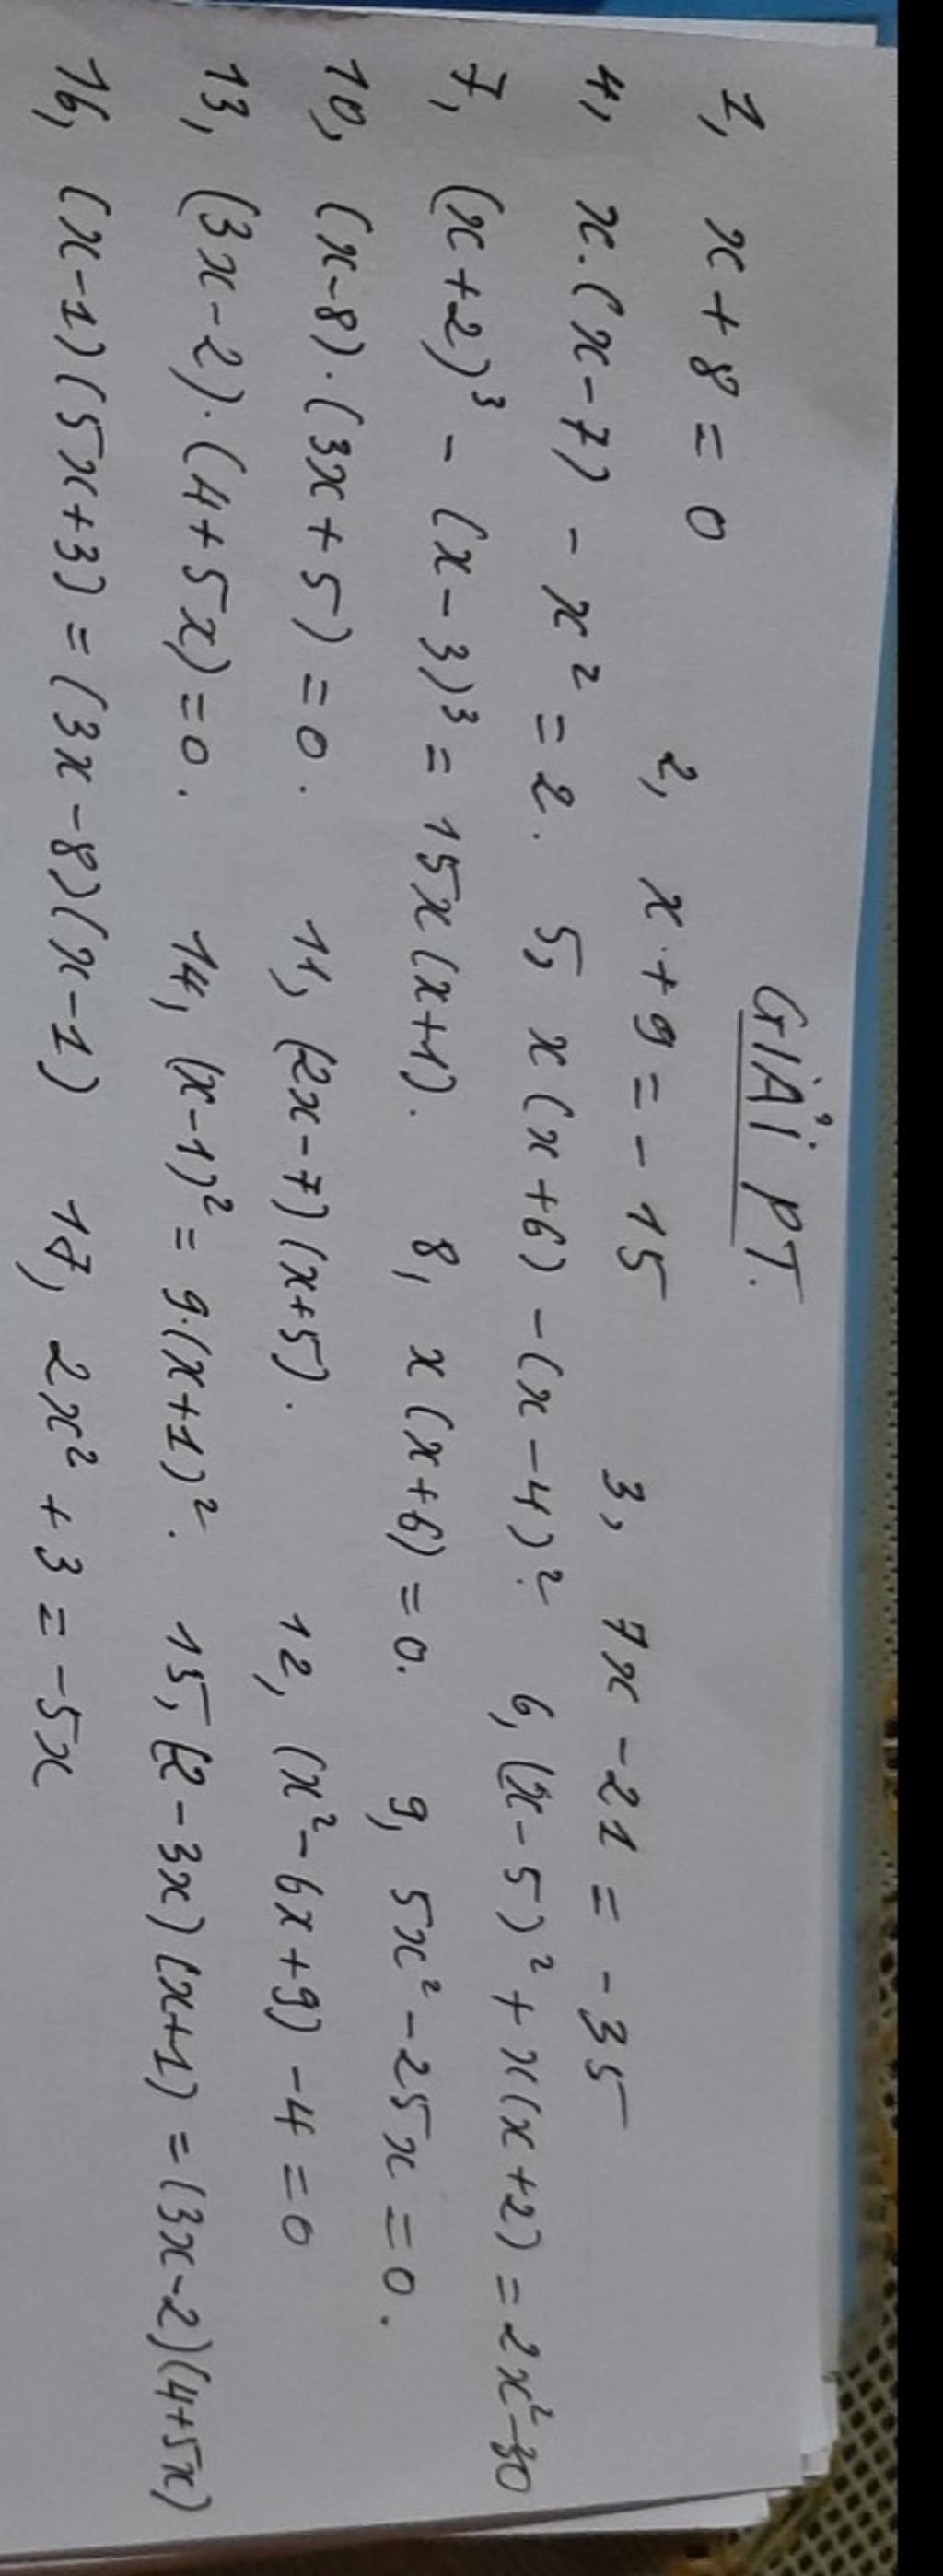 GIẢI PT.
1, x + 8 = 0 2, x + 9 = - 15 3, 7x - 21 = - 35
4, x.(x - 7) - x² = 2. 5, x(x + 6) - (x - 4)². 6, (x - 5)² + x(x + 2) = 2x² - 30
7, (x + 2)³ - (x - 3)³ = 15x(x + 1). 8, x(x + 6) = 0. 9, 5x² - 25x = 0.
10, (x - 8).(3x + 5) = 0. 11, (2x - 7)(x + 5). 12, (x² - 6x + 9) - 4 = 0
13, (3x - 2).(4 + 5x) = 0. 14, (x - 1)² = 9.(x + 1)². 15, (2 - 3x)(x + 1) = (3x - 2)(4 + 5x)
16, (x - 1)(5x + 3) = (3x - 8)(x - 1) 17, 2x² + 3 = -5x